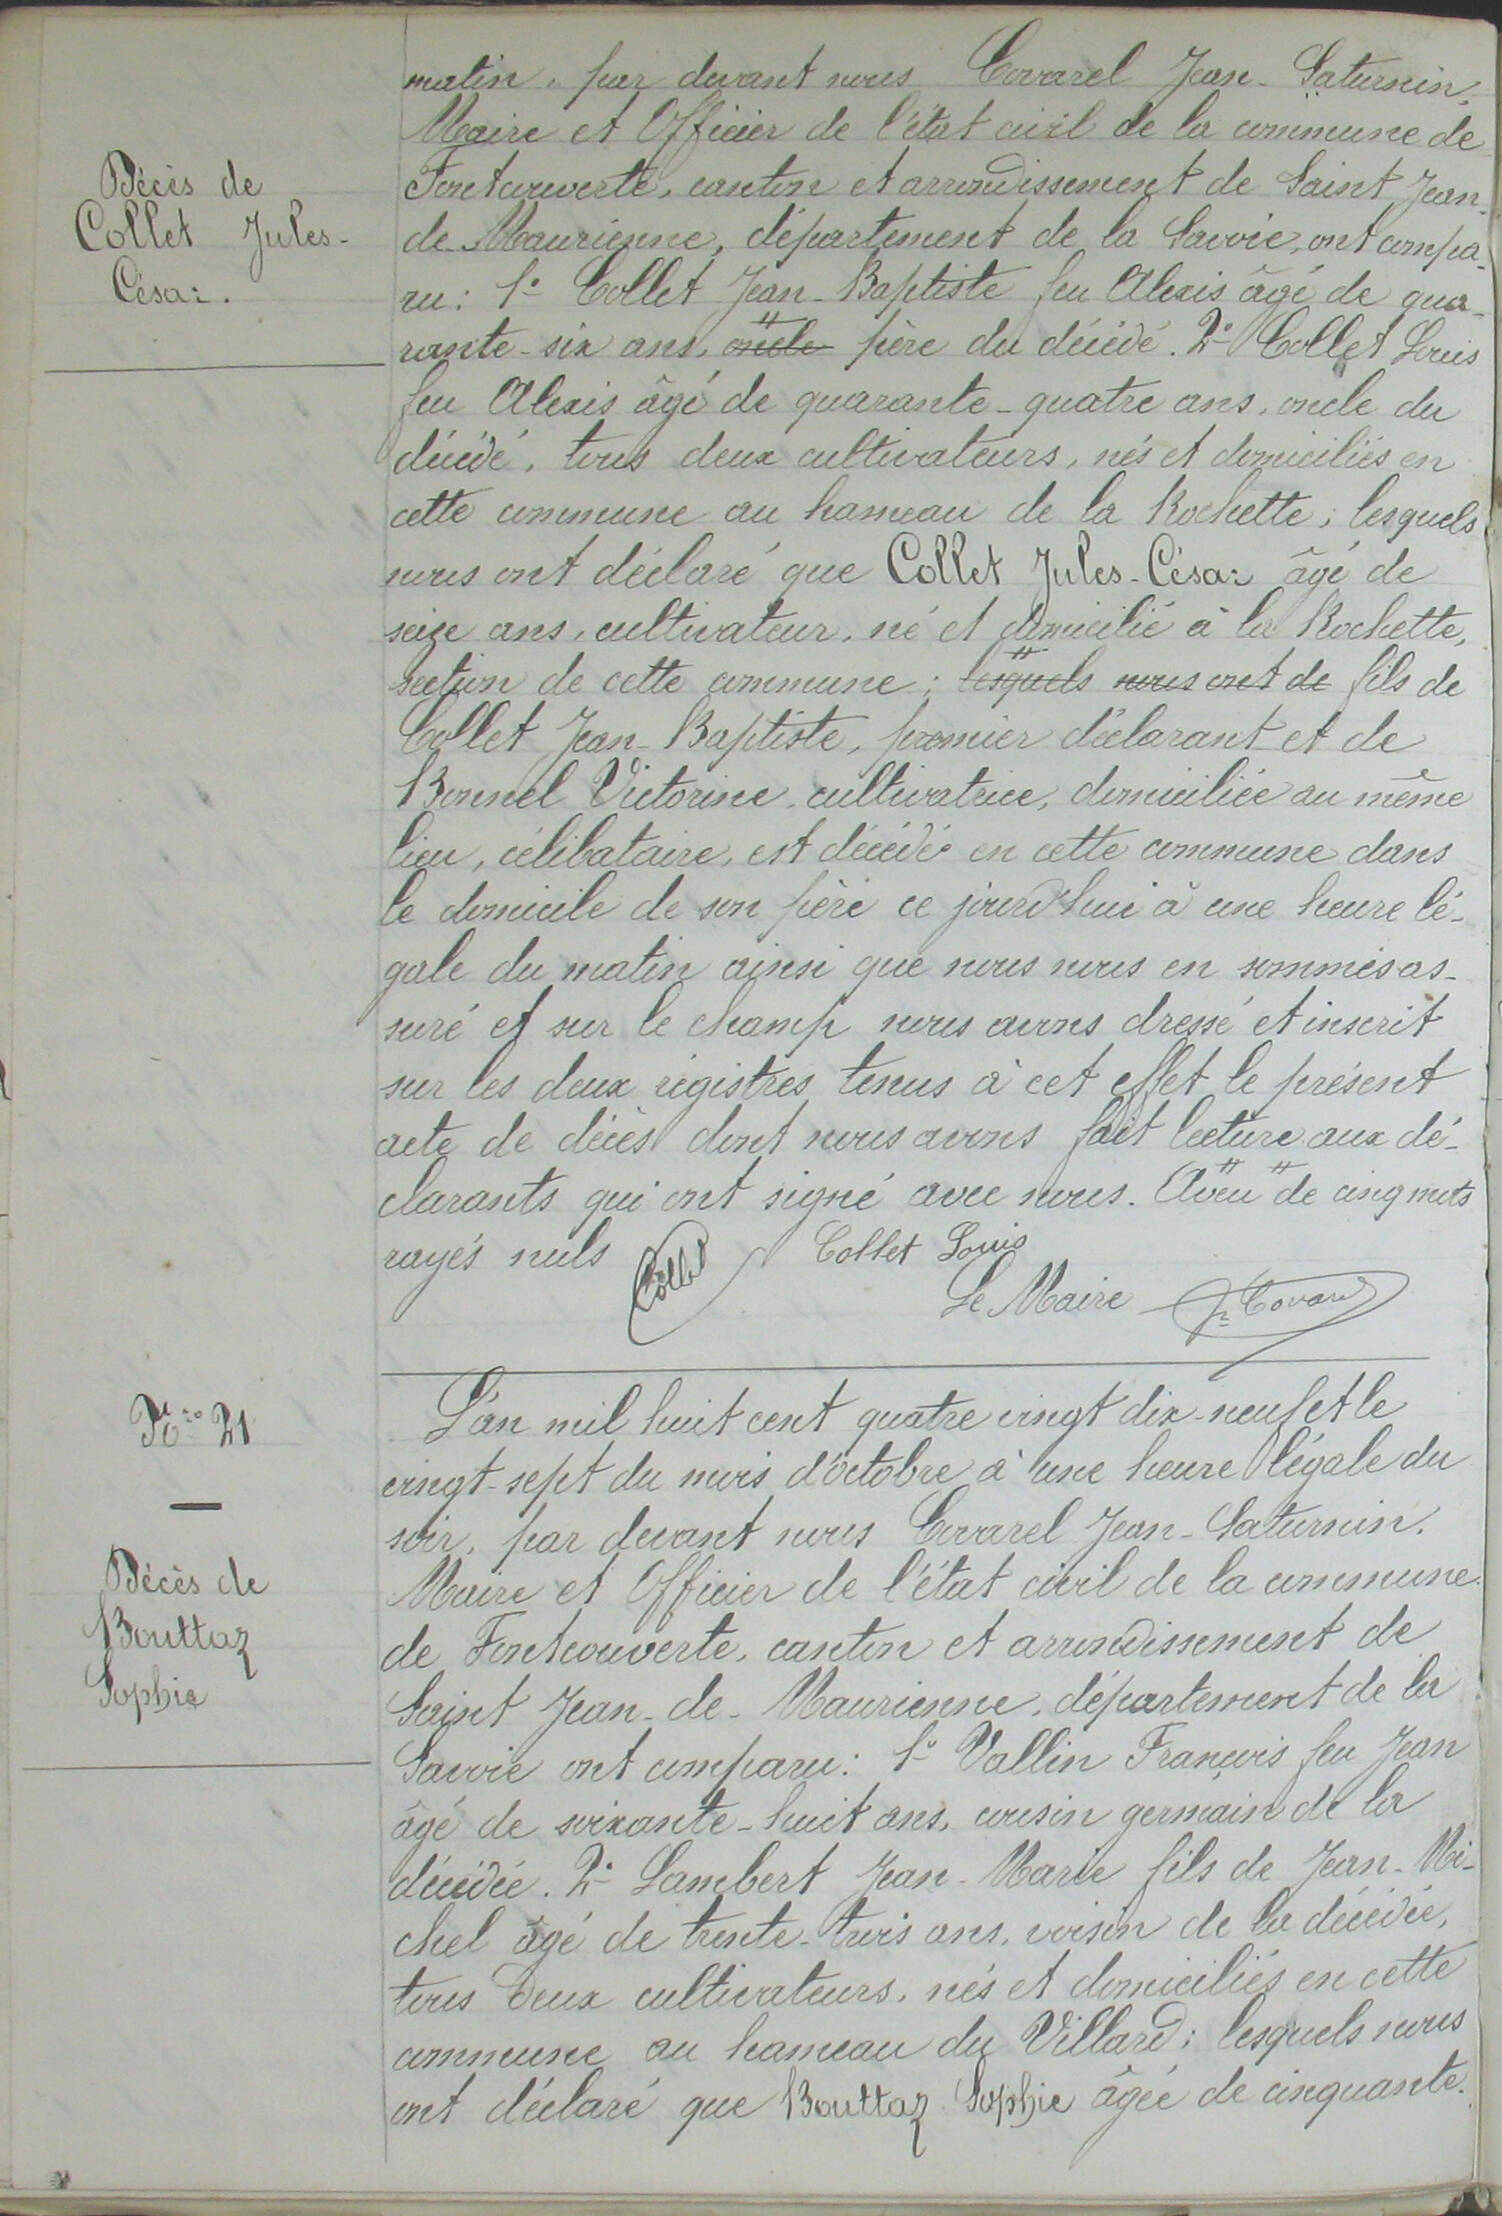 Décès de
Collet Jules-
César.
matin, par devant nous Covarel Jean-Saturnin,
Maire et Officier de l'état civil de la commune de
Fontcouverte, canton et arrondissement de Saint Jean-
de-Maurienne, département de la Savoie, ont compa-
ru: 1° Collet Jean-Baptiste feu Alexis âgé de qua-
rante-six ans, oncle père du décédé. 2° Collet Louis
feu Alexis âgé de quarante-quatre ans, oncle du
décédé, tous deux cultivateurs, nés et domiciliés en
cette commune au hameau de la Rochette; lesquels
nous ont déclaré que Collet Jules-César âgé de
seize ans, cultivateur, né et domicilié à la Rochette,
section de cette commune; lesquels nous ont de fils de
Collet Jean-Baptiste, premier déclarant et de
Bonnel Victorine, cultivatrice, domiciliée au même
lieu, célibataire, est décédé en cette commune dans
le domicile de son père ce jourd'hui à une heure lé-
gale du matin ainsi que nous nous en sommes as-
suré et sur le champ nous avons dressé et inscrit
sur les deux régistres tenus à cet effet le présent
acte de décès dont nous avons fait lecture aux dé-
clarants qui ont signé avec nous. Aveu de cinq mots
rayés nuls Collet Collet Louis
Le Maire Jn Covarel
N°ro 21
Décès de
Bouttaz
Sophie
L'an mil huit cent quatre vingt dix-neuf et le
vingt-sept du mois d'octobre à une heure légale du
soir, par devant nous Covarel Jean-Saturnin.
Maire et Officier de l'état civil de la commune
de Fontcouverte, canton et arrondissement de
Saint Jean-de-Maurienne, département de la
Savoie ont comparu: 1° Vallin François feu Jean
âgé de soixante-huit ans, cousin germain de la
décédée. 2° Lambert Jean-Marie fils de Jean-Mi-
chel âgé de trente-trois ans, voisin de la décédée,
tous deux cultivateurs, nés et domiciliés en cette
commune au hameau du Villard; lesquels nous
ont déclaré que Bouttaz Sophie âgée de cinquante-